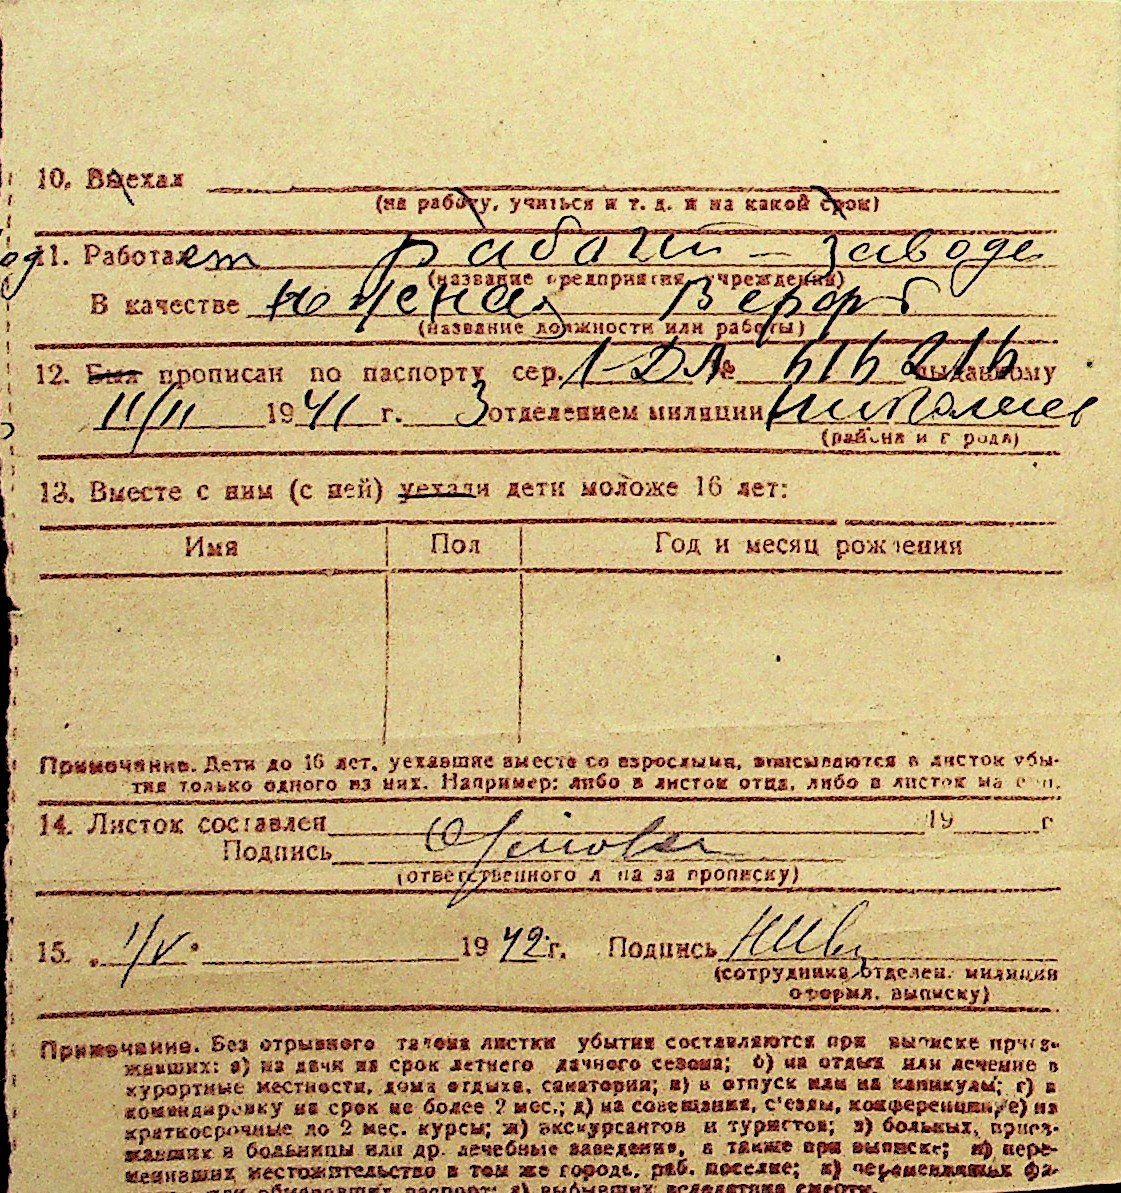 10. Выехал
(на работу, учиться и т. д. и на какой срок)
11. Работает рабочий – заводе
(название предприятия учреждения)
В качестве
(название должности или работы)
12. Был прописан по паспорту сер. 1-ДЛ № 616216 выданному
11/II 1941 г. 3 отделением милиции
(района и города)
13. Вместе с ним (с ней) уехали дети моложе 16 лет:
Имя Пол Год и месяц рождения
Примечание. Дети до 16 лет, уехавшие вместе со взрослыми, вписываются в листок убы-
тия только одного из них. Например: либо в листок отца, либо в листок матери.
14. Листок составлен 19 г
Подпись
(ответственного лица за прописку)
15. „1/V" 1942 г. Подпись
(сотрудника отделен. милиции
оформл. выписку)
Примечание. Без отрывного талона листки убытия составляются при выписке приез-
жавших: а) на дачи на срок летнего дачного сезона; б) на отдых или лечение в
курортные местности, дома отдыха, санатории; в) в отпуск или на каникулы; г) в
командировку на срок не более 2 мес.; д) на совещания, с'езды, конференции; е) на
краткосрочные до 2 мес. курсы; ж) экскурсантов и туристов; з) больных, приез-
жавших в больницы или др. лечебные заведения, а также при выписке; и) пере-
менивших местожительство в том же городе, раб. поселке; к) переменивших фа-
или обменявших паспорт; л) выбывших вследствие смерти.